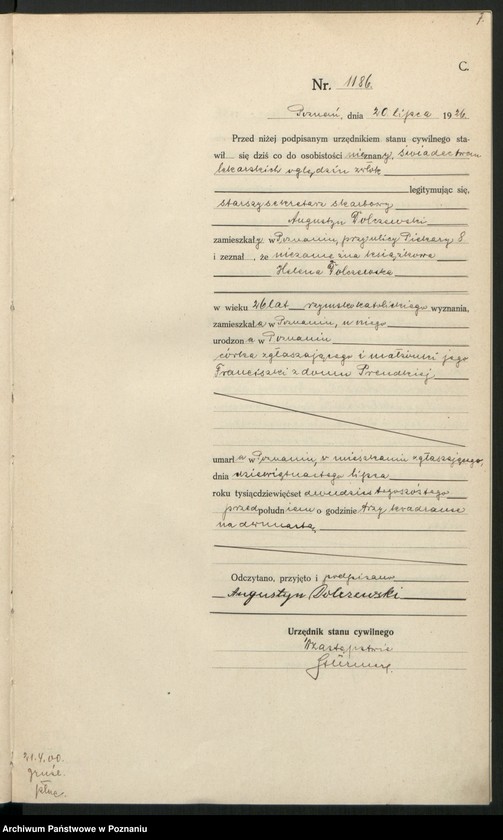 7.
C.
Nr. 1186.
Poznań, dnia 20 lipca 1926
Przed niżej podpisanym urzędnikiem stanu cywilnego sta-
wił się dziś co do osobistości nieznany, świadectwem
lekarskich oględzin zwłok
legitymując się,
starszy sekretarz skarbowy
Augustyn Polczewski
zamieszkały w Poznaniu, przy ulicy Piekary 8
i zeznał, że niezamężna książkowa
Helena Polczewska
w wieku 26 lat rzymskokatolickiego wyznania,
zamieszkała w Poznaniu, u niego
urodzona w Poznaniu
córka zgłaszającego i małżonki jego
Franciszki z domu Prendkiej
umarła w Poznaniu, w mieszkaniu zgłaszającego,
dnia dziewiętnastego lipca
roku tysiącdziewięćset dwudziestegoszóstego
przedpołudniem o godzinie trzy kwadranse
na dwunastą
Odczytano, przyjęto i podpisano
Augustyn Polczewski
Urzędnik stanu cywilnego
W zastępstwie
21.4.00.
gruźl.
płuc.
Archiwum Państwowe w Poznaniu